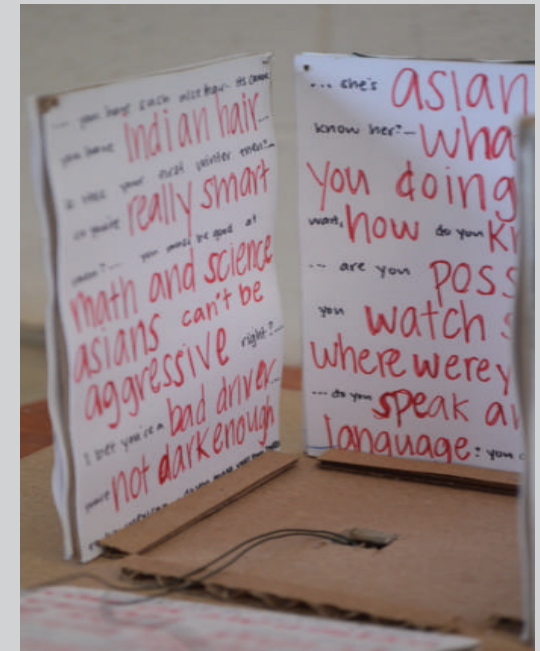 ... you have such nice hair- its cause
you have Indian hair...
is this your first winter then?-
so you're really smart
then?... you must be good at
math and science
asians can't be
aggressive right?...
I bet you're a bad driver...
you're not dark enough
... she's asian
know her?- wha
you doing
want, how do you k
... are you poss
you watch s
where were y
... do you speak a
language? you